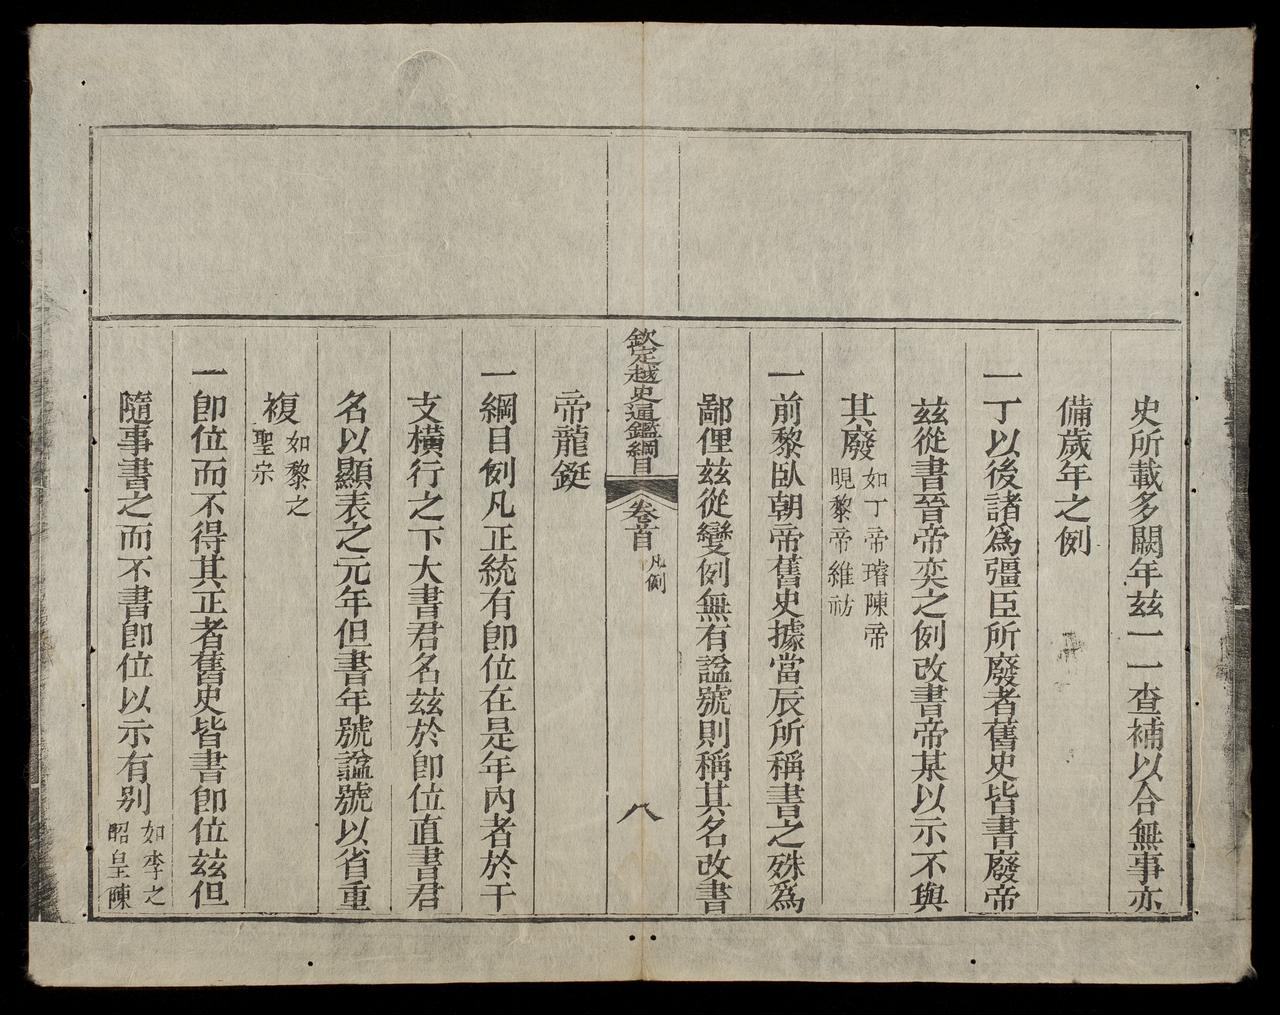 史所載多闕年玆一一查補以合無事亦
備歲年之例
一丁以後諸爲彊臣所廢者舊史皆書廢帝
玆從書晉帝奕之例改書帝某以示不與
其廢如丁帝璿陳帝晛黎帝維祊
一前黎臥朝帝舊史據當辰所稱書之殊爲
鄙俚玆從變例無有諡號則稱其名改書
欽定越史通鑑綱目 卷首 凡例 八
帝龍鋌
一綱目例凡正統有卽位在是年內者於干
支橫行之下大書君名玆於卽位直書君
名以顯表之元年但書年號諡號以省重
複如黎之聖宗
一卽位而不得其正者舊史皆書卽位玆但
隨事書之而不書卽位以示有別如李之昭皇陳